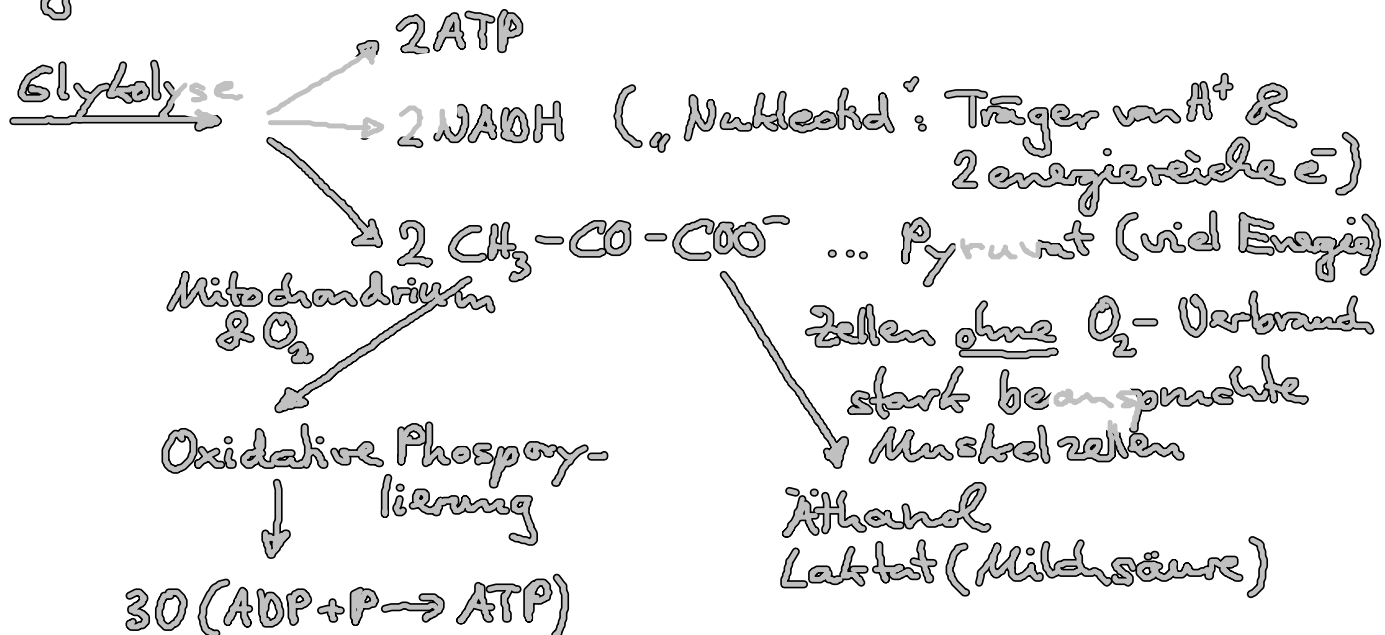 2 ATP
Glykolyse
2 NADH („Nukleotid": Träger von H⁺ &
2 energiereiche e⁻)
2 CH₃-CO-COO⁻ ... Pyruvat (viel Energie)
Mitochondrium
& O₂
Zellen ohne O₂-Verbrauch
stark beanspruchte
Muskelzellen
Oxidative Phosphory-
lierung
Äthanol
Laktat (Milchsäure)
30 (ADP+P→ATP)